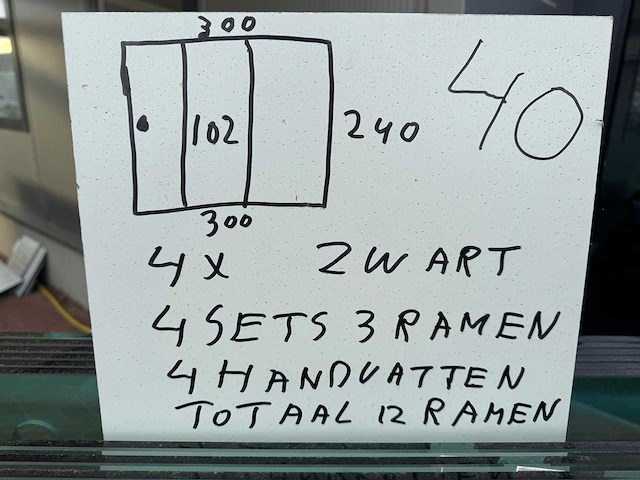 300
40
102
240
300
4 X ZWART
4 SETS 3 RAMEN
4 HANDVATTEN
TOTAAL 12 RAMEN